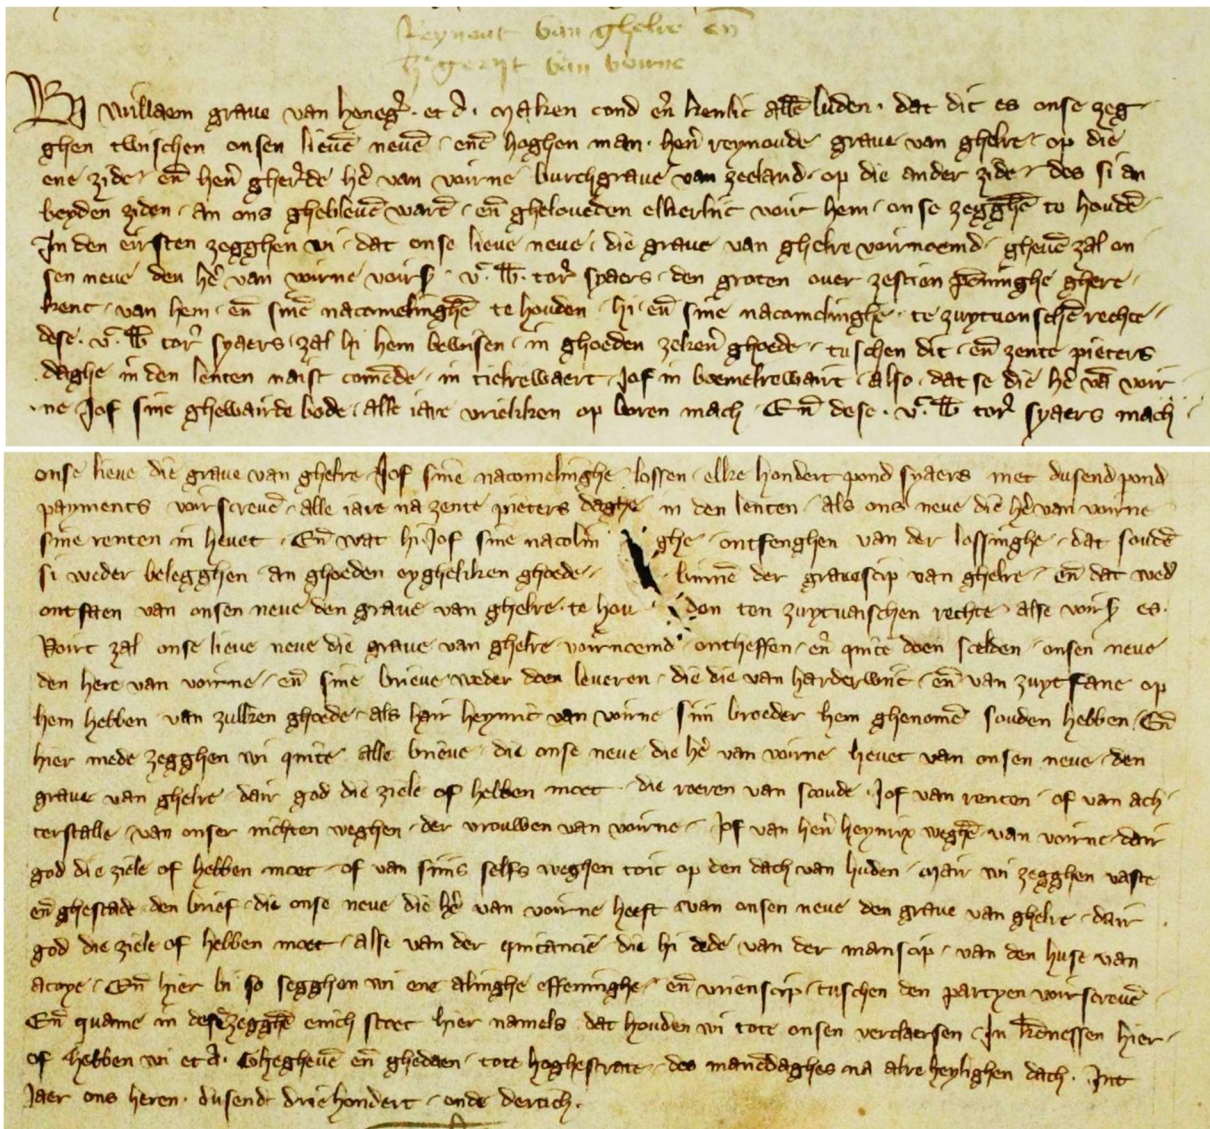 Reynout van ghelre en̄
h̄ gerijt van voirne
Wi willaem graue van heneg̉. et c̉. maken cond en̄ kenlic allē luden. dat dit es onse zeg
ghen twisschen onsen lieuē neuē. enē hoghen man. hern̄ reynoude graue van ghelre. op die
ene zide. en̄ hern̄ gher̉de hē van voirne burchgraue van zeeland. op die ander zide. des si an
beyden ziden. an ons ghebleuē warē. en̄ gheloueden elkerlijc vour hem. onse zegghē to houdē.
In den eirsten zegghen wi. dat onse lieue neue. die graue van ghelre voirnoemd. gheuē zal on
sen neue den hē van voirne voirs. v.c lb. tor̉ syaers. den groten ouer zestien pēninghe ghere
kent. van hem. en̄ sinē nacomelinghē te houden. hi. en̄ sine nacomelinghē. te zuytuenschē rechte.
dese. v.c lb tor̉ syaers. zal hi hem bewisen. in ghoeden zekern̄ ghoede. tuschen dit. en̄ zente pieters
daghe in den lenten naist comēde. in tielrewaert. Jof in boemelrewairt. also. dat se die hē vā voir
ne. Jof sine ghewairde bode. alle iare vrielken op boren mach. En̄ dese. v.c lb tor̉ syaers mach
onse lieue die graue van ghelre. Jof sine nacomelinghe lossen. elke hondert pond syaers met dusend pond
payments voirscreuē. alle iare na zente pieters daghe in den lenten. als ons neue die hē van voirne
sine renten in heuet. En̄ wat hi. Jof sine nacolin ghe. ontfenghen van der lossinghe. dat soudē
si weder belegghen. an ghoeden eygheliken ghoede. binnē der graefscip van ghelre. en̄ dat wed̉
ontfaen van onsen neue den graue van ghelre. te hou den ten zuytuaischen rechte. alse voirs es.
Voirt zal onse lieue neue die graue van ghelre voirnoemd. ontheffen. en̄ quite doen scelden. onsen neue
den here van voirne. en̄ sine brieue weder doen leueren. die die van harderwijc. en̄ van zuytfane op
hem hebben. van zulken ghoede. als hair heynric van voirne sijn broeder hem ghenomē souden hebben. En̄
hier mede zegghen wi quite alle brieue. die onse neue die hē van voirne heuet van onsen neue. den
graue van ghelre. dair god die ziele of hebben moet. die roeren van scoude. Jof van renten. of van ach
terstalle. van onser nichten weghen. der vrouwen van voirne. Jof van hern̄ heynrix weghē van voirne. dair
god die ziele of hebben moet. of van sijns selfs weghen toit op den dach van huden. Mair wi zegghen vaste
en̄ ghestade den brief. die onse neue die hē van voirne heeft van onsen neue den graue van ghelre. dair
god die ziele of hebben moet. alse van der quitancie die hi dede van der manscip. van den huse van
acoye. En̄ hier bi so segghen wi ene alinghe effeninghe. en̄ vrienscip. tuschen den partyen voirscreuē.
En̄ quame in desē zegghē enich stoet hier namels. dat houden wi tote onsen verclaersen. In kēnessen hier
of hebben wi et c̉. Ghegheuē en̄ ghedaen. tote hoghestrate. des manēdaghes na alre heylighen dach. Int
Jaer ons heren. dusend driehondert. ende dertich.